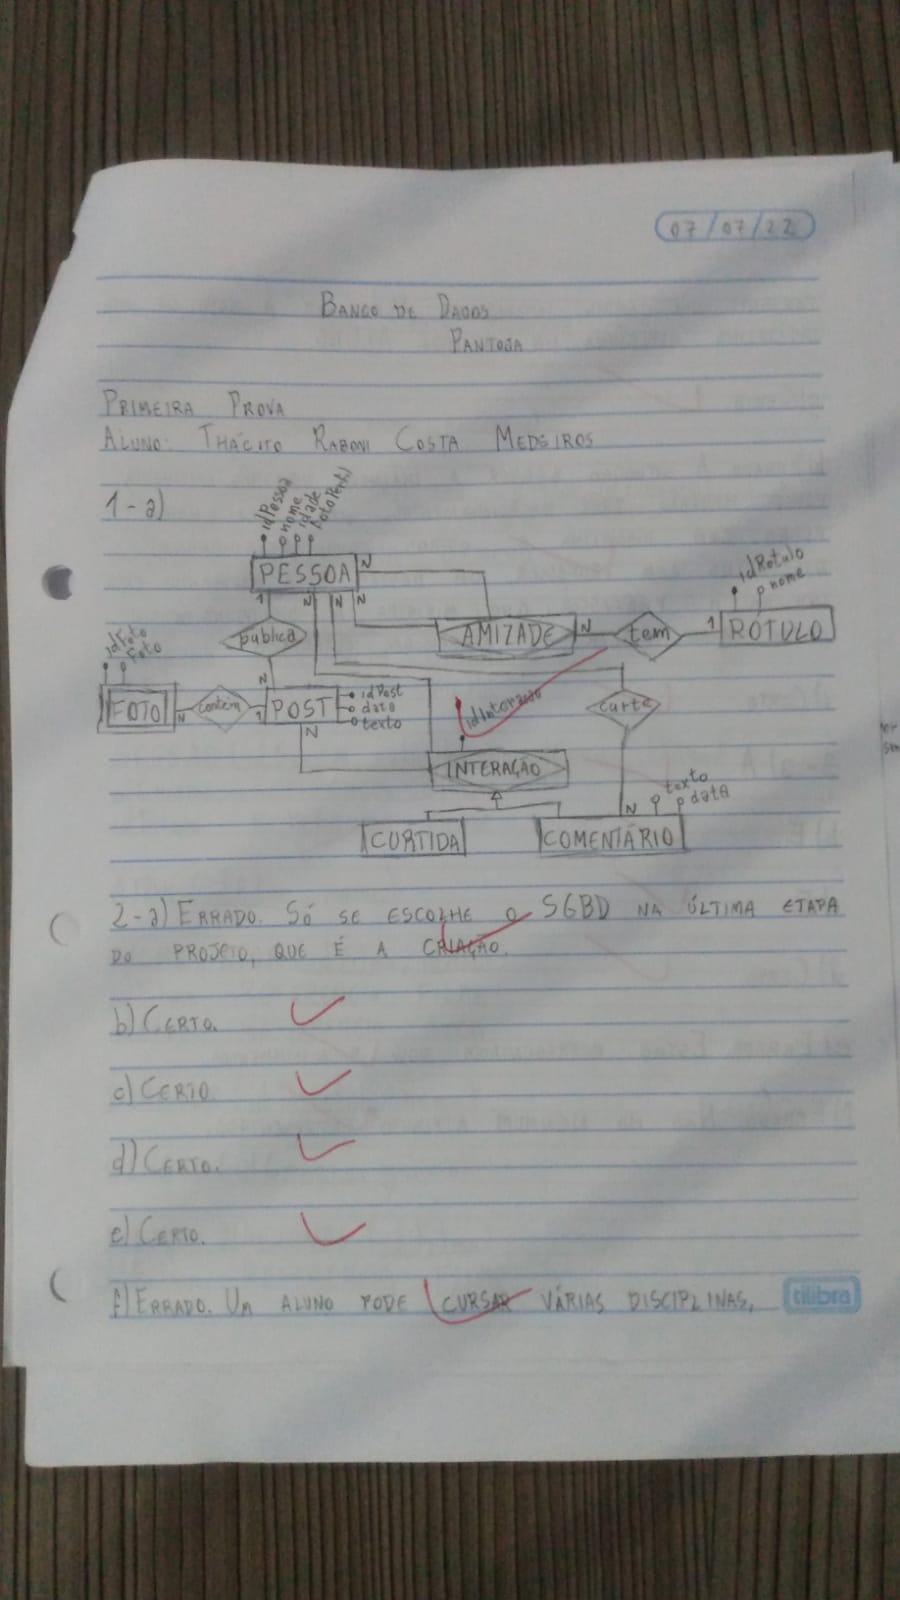 07/07/22
BANCO DE DADOS
PANTOJA
PRIMEIRA PROVA
ALUNO: THÁCITO RABONI COSTA MEDEIROS
1-a)
idPessoa
nome
idade
FotoPerfil
PESSOA
N
1
N
N
N
AMIZADE
N
tem
1
RÓTULO
idRotulo
nome
publica
N
idFoto
Foto
FOTO
N
contem
1
POST
idPost
data
texto
N
idInteração
curte
INTERAÇÃO
N
texto
data
CURTIDA
COMENTÁRIO
2-a) ERRADO. SÓ SE ESCOLHE O SGBD NA ÚLTIMA ETAPA
DO PROJETO, QUE É A CRIAÇÃO.
b) CERTO.
c) CERTO
d) CERTO.
e) CERTO.
f) ERRADO. UM ALUNO PODE CURSAR VÁRIAS DISCIPLINAS,
tilibra